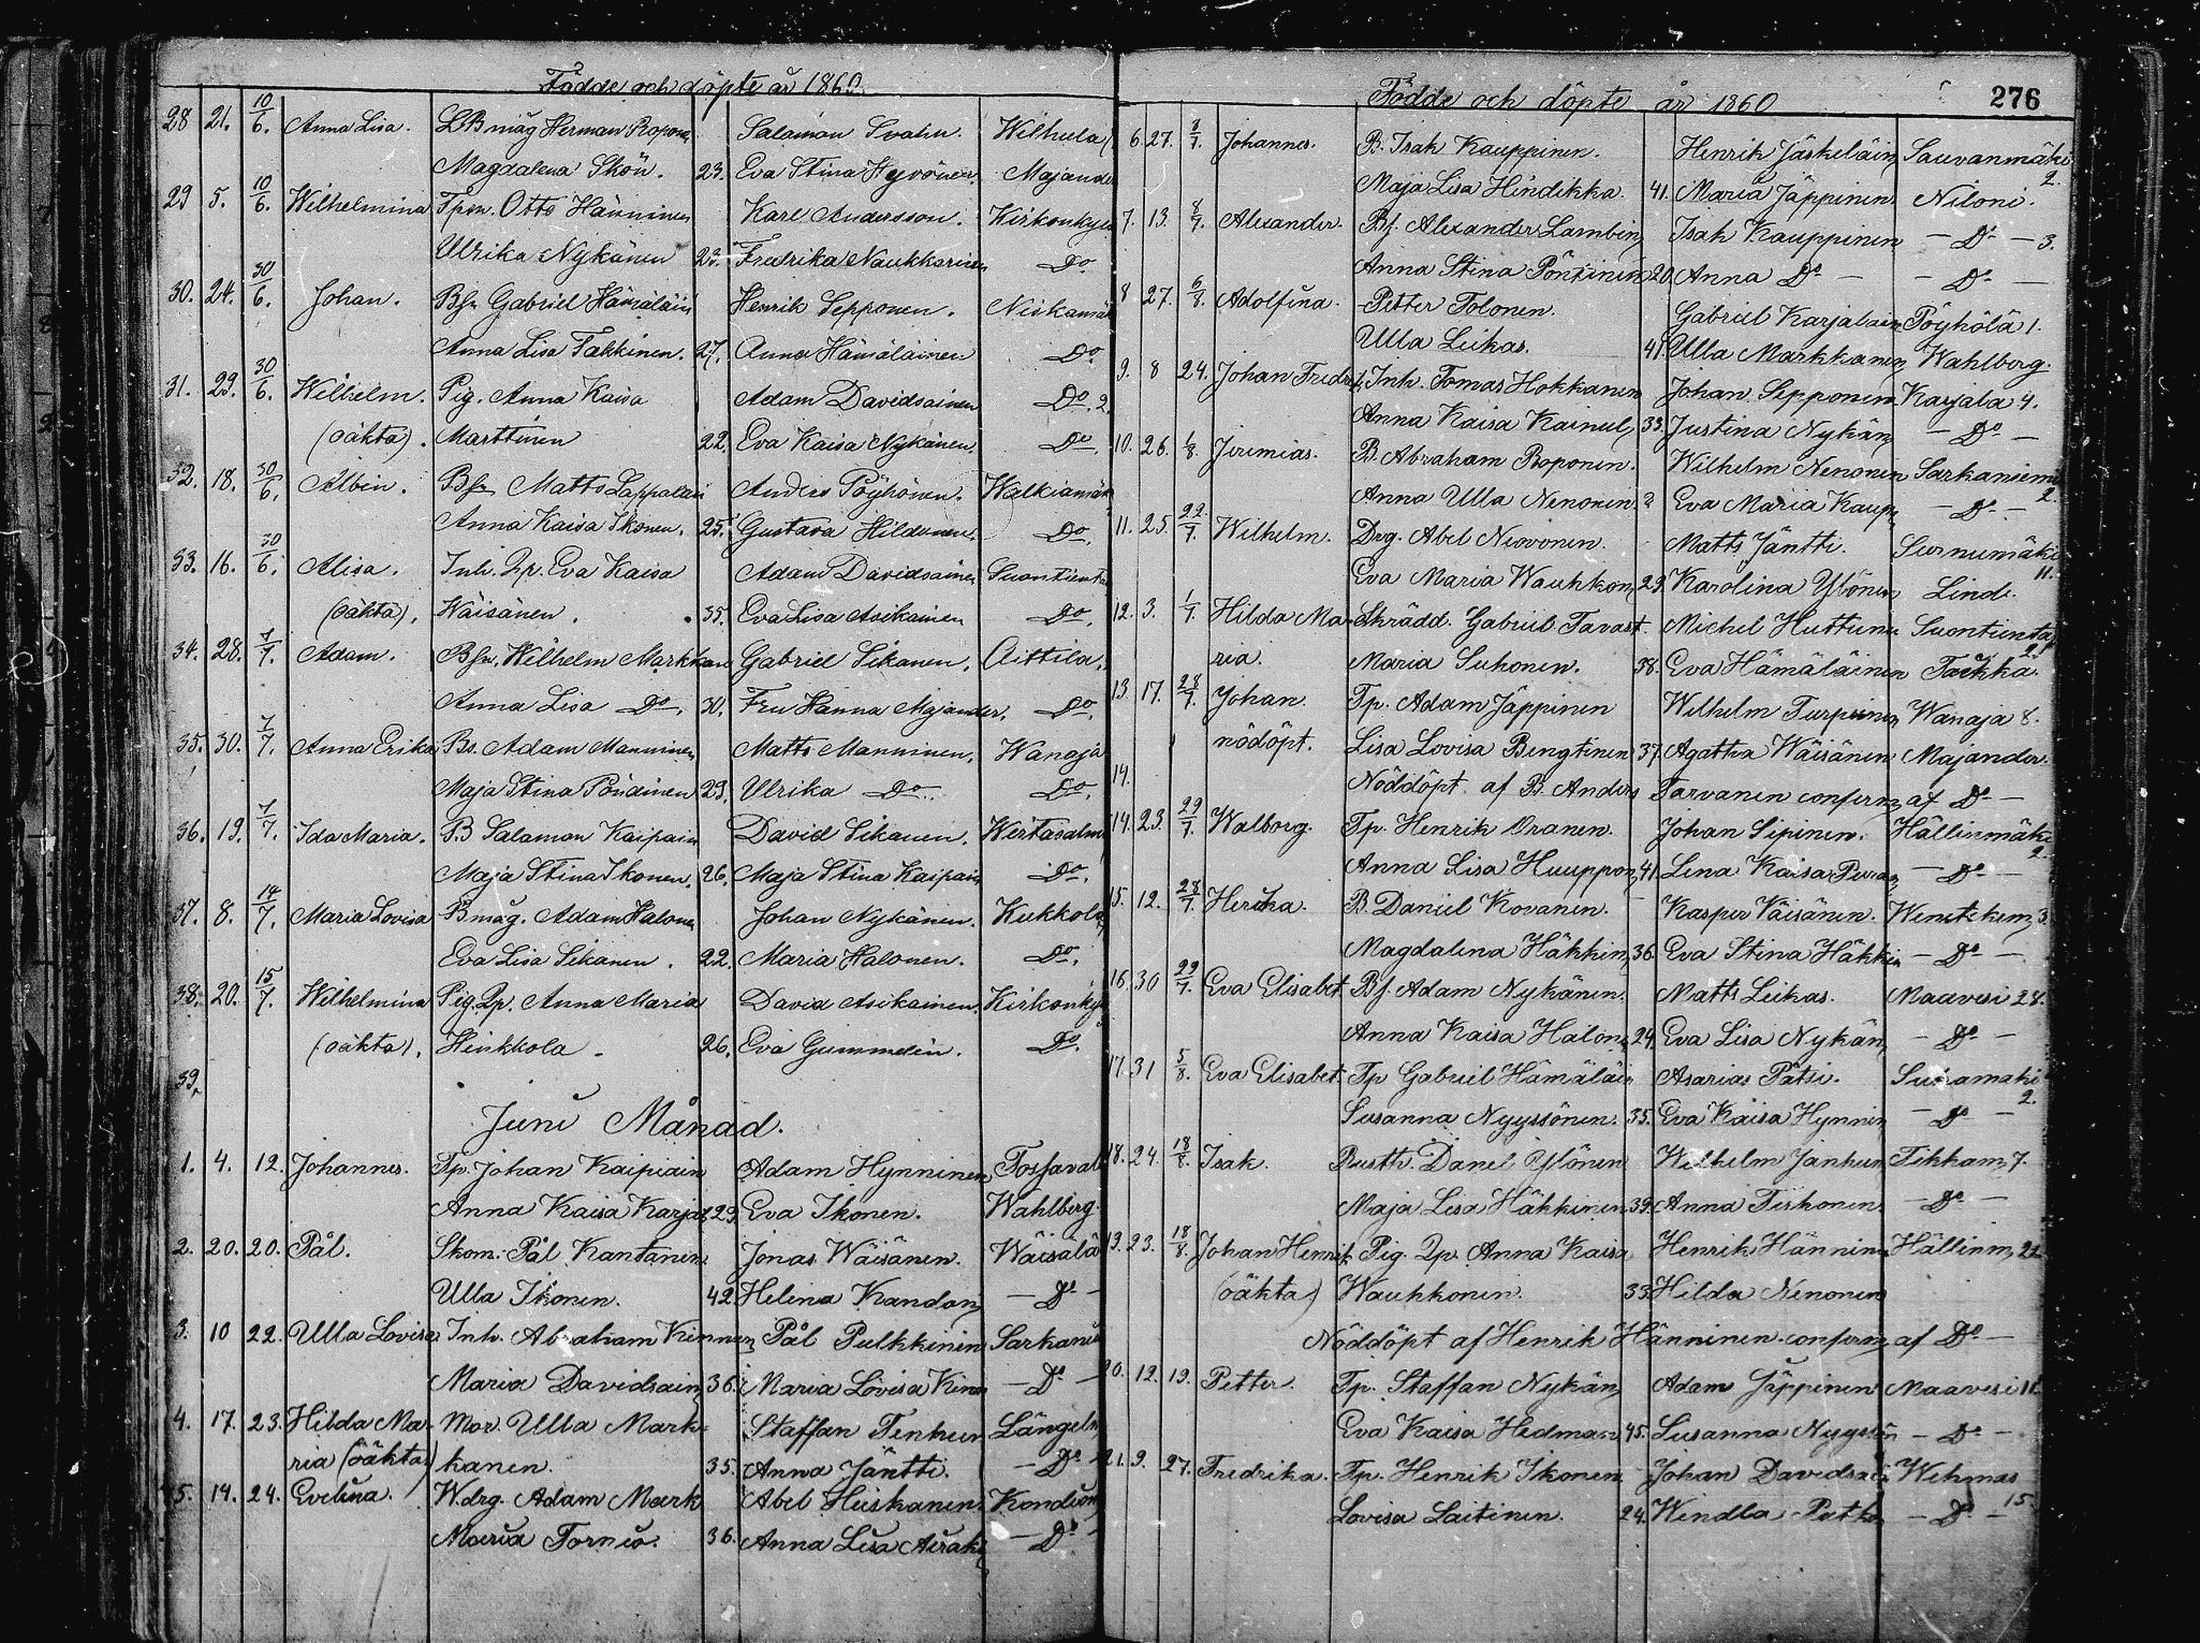 Födde och döpte år 1860.
28 21. 10/6. Anna Lisa. LBmåg Herman Roponen Salamon Svahn. Wilhula
Magdalena Skön. 23. Eva Stina Hyvönen. Majander
29 5. 10/6. Wilhelmina Tpsn. Otto Hänninen Karl Andersson. Kirkonkyl
Ulrika Nykänen 23. Fredrika Naukkarinen Do
30. 24. 30/6. Johan. Bsn Gabriel Hämäläin Henrik Sepponen. Niskamäk
Anna Lisa Takkinen. 27. Anna Hämäläinen Do
31. 29. 30/6. Wilhelm. Pig. Anna Kaisa Adam Davidsainen Do. 2.
(oäkta). Marttinen 22. Eva Kaisa Nykänen. Do
32. 18. 30/6. Albin. Bsn Matts Lappalain Anders Pöyhönen. Walkiamäk
Anna Kaisa Ikonen. 25. Gustava Hildunen. Do.
33. 16. 30/6. Alisa. Inh. Qp. Eva Kaisa Adam Davidsainen Suontienta
(oäkta). Wäisänen. 35. Eva Lisa Asikainen Do.
34. 28. 7/7. Adam. Bsn. Wilhelm Markkan Gabriel Sikanen. Aittila.
Anna Lisa Do. 30. Fru Hanna Majander. Do.
35. 30. 7/7. Anna Erika Bs. Adam Manninen Matts Manninen. Wanaja
Maja Stina Pöndinen 29. Ulrika Do. Do.
36. 19. 7/7. Ida Maria. B Salamon Kaipain David Sikanen. Wirtasalm
Maja Stina Ikonen. 26. Maja Stina Kaipain Do.
37. 8. 14/7. Maria Lovisa Bmåg. Adam Halonen Johan Nykänen. Kukkola
Eva Lisa Sikanen. 22. Maria Halonen. Do.
38. 20. 15/7. Wilhelmina Pig. Qp. Anna Maria David Asikainen. Kirkonky
(oäkta). Hinkkola. 26. Eva Gummdein. Do.
39.
Juni Månad.
1. 4. 12. Johannes. Tp. Johan Kaipiain Adam Hynninen Tosfaval
Anna Kaisa Karjal 29. Eva Ikonen. Wahlberg.
2. 20. 20. Pål. Skom. Pål Kantanen Jonas Wäisänen. Wäisälä
Ulla Ikonen. 42. Helena Kandan D:o
3. 10 22. Ulla Lovisa Inh. Abraham Kinnun Pål Pulkkinen Sarkanie
Maria Davidsain 36. Maria Lovisa Kinn D:o
4. 17. 23. Hilda Ma- Mor. Ulla Mark- Staffan Tenhun Längelm
ria (oäkta) kanen. 35. Anna Jäntti. D:o
5. 14. 24. Evelina. Wdrg. Adam Mark Abel Hiiskanen. Kondion
Maria Tornio. 36. Anna Lisa Airaks D:o
Födde och döpte år 1860 276
6. 27. 8/7. Johannes. B. Isak Kauppinen. Henrik Jäskeläin Sauvanmäki 2.
Maja Lisa Hindikka. 41. Maria Jäppinen Niloni.
7. 13. 8/7. Alexander. Bf. Alexander Lambin Isak Kauppinen D:o 3.
Anna Stina Pöntinen 20. Anna D:o D:o
8 27. 6/8. Adolfina. Petter Tolonen. Gabriel Karjalain Pöyhölä 1.
Ulla Leikas. 41. Ulla Markkanen Wahlberg.
9. 8 24. Johan Fredrik Inh. Tomas Hokkanen Johan Sepponen Karjala 4.
Anna Kaisa Kainul 33. Justina Nykän Do
10. 26. 1/8. Jeremias. B. Abraham Roponen. Wilhelm Nenonen Sarkaniemi 2.
Anna Ulla Nenonen ? Eva Maria Kaup D:o
11. 25. 22/7. Wilhelm. Drg. Abel Niovonen. Matts Jäntti. Surnumäki 11.
Eva Maria Wauhkon 29. Karolina Ylönen Lind.
12. 3. 1/7. Hilda Ma- Skrädd. Gabriel Tavast. Michel Huttunen Suontienta
ria. Maria Suhonen. 38. Eva Hämäläinen Taskka.
13. 17. 28/7. Johan Tp. Adam Jäppinen Wilhelm Turpeinen Wanaja 8.
nödöpt. Lisa Lovisa Bengtinen 37. Agatha Wäisänen Majander.
14. Nöddöpt af B. Anders Tarvanen confirm af D:o
14. 23. 29/7. Walborg. Tp. Henrik Oranen. Johan Sipinen. Hällinmäki 2.
Anna Lisa Huuppon 41. Lina Kaisa Puran D:o
15. 12. 28/7. Herika. B. Daniel Kovanen. Kasper Väisänen. Wenetekem 3
Magdalena Häkkin 36. Eva Stina Häkkin D:o
16. 30 29/7. Eva Elisabet Bf. Adam Nykänen. Matts Leikas. Maavesi 28.
Anna Kaisa Halon 24. Eva Lisa Nykän D:o
17. 31 5/8. Eva Elisabet Tp Gabriel Hämäläin Asarias Pätsi. Suuramäki 2.
Susanna Nyyssönen. 35. Eva Kaisa Hynnin D:o
18. 24. 18/8. Isak. Busth. Danel Ylönen Wilhelm Janhun Tikkam 7.
Maja Lisa Häkkinen 39. Anna Tirkonen D:o
19. 23. 18/8. Johan Henrik Pig. Qp. Anna Kaisa Henrik Hännin Hällinm 22
(oäkta) Wauhkonen. 33. Hilda Nenonen
Nöddöpt af Henrik Hänninen confirm af D:o
20. 12. 19. Petter. Tp. Staffan Nykän Adam Jäppinen Maavesi 11.
Eva Kaisa Hedman 45. Susanna Nyyssön D:o
21. 9. 27. Fredrika. Tp. Henrik Ikonen Johan Davidsain Wehmas 15
Lovisa Laitinen. 24. Windla Putko D:o